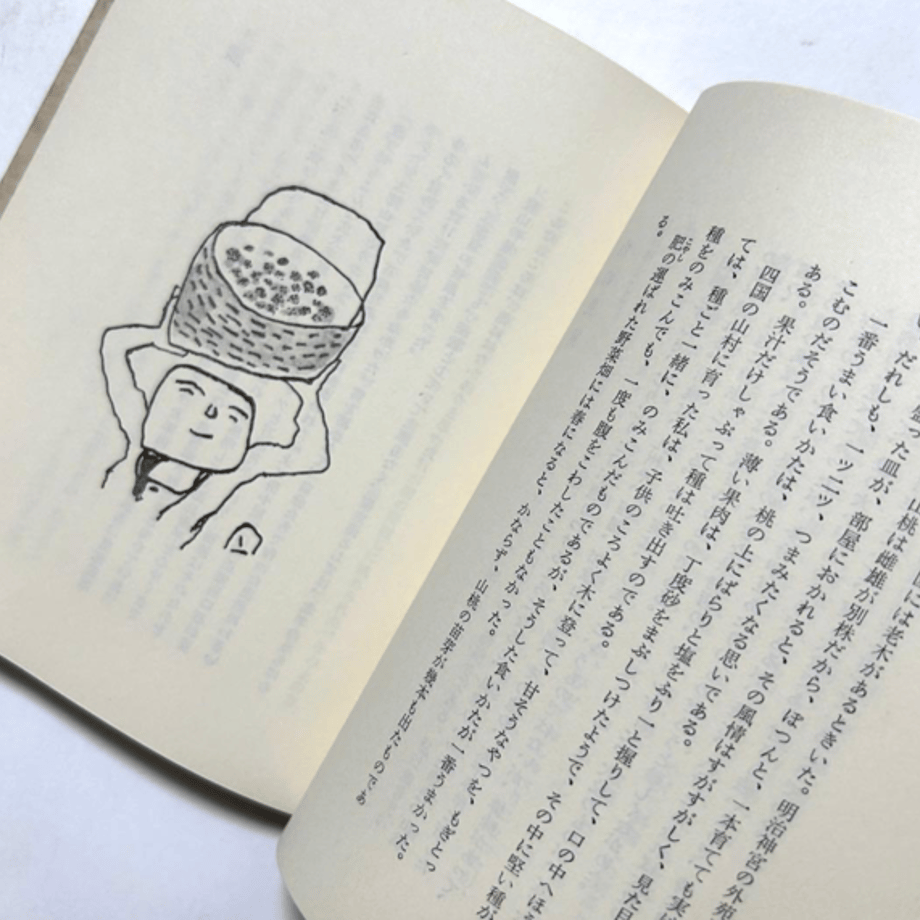 には老木があるときいた。明治神宮の外苑
山桃は雌雄が別株だから、ぽつんと、一本育てても実
盛った皿が、部屋におかれると、その風情はすがすがしく、見た目
だれしも、一ツ二ツ、つまみたくなる思いである。
一番うまい食いかたは、桃の上にぱらりと塩をふり一と握りして、口の中へほ
こむのだそうである。薄い果肉は、丁度砂をまぶしつけたようで、その中に堅い種が
ある。果汁だけしゃぶって種は吐き出すのである。
四国の山村に育った私は、子供のころよく木に登って、甘そうなやつを、もぎとっ
ては、種ごと一緒に、のみこんだものであるが、そうした食いかたが一番うまかった。
種をのみこんでも、一度も腹をこわしたこともなかった。
こやし
肥の運ばれた野菜畑には春になると、かならず、山桃の苗芽が幾本も出たものであ
る。